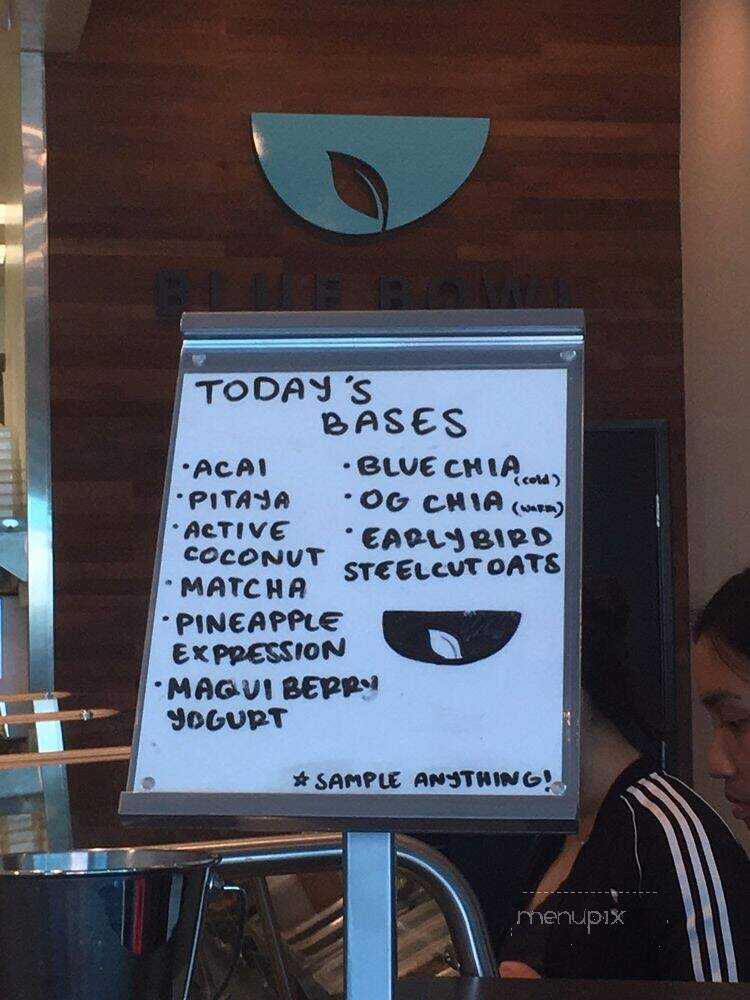 BLUE BOWL
TODAY'S
BASES
• ACAI
• PITAYA
• ACTIVE
COCONUT
• MATCHA
• PINEAPPLE
EXPRESSION
• MAQUI BERRY
YOGURT
• BLUE CHIA (cold)
• OG CHIA (warm)
• EARLYBIRD
STEELCUT OATS
☆ SAMPLE ANYTHING!
menupix